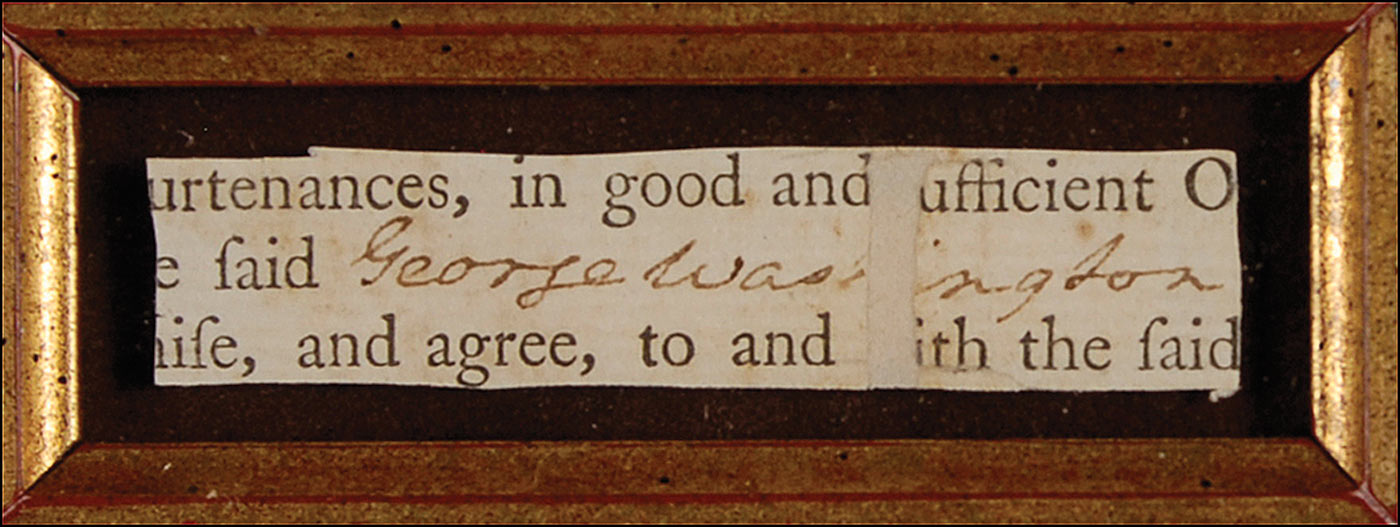 urtenances, in good and ufficient O
e ſaid George Was ington
hiſe, and agree, to and ith the ſaid